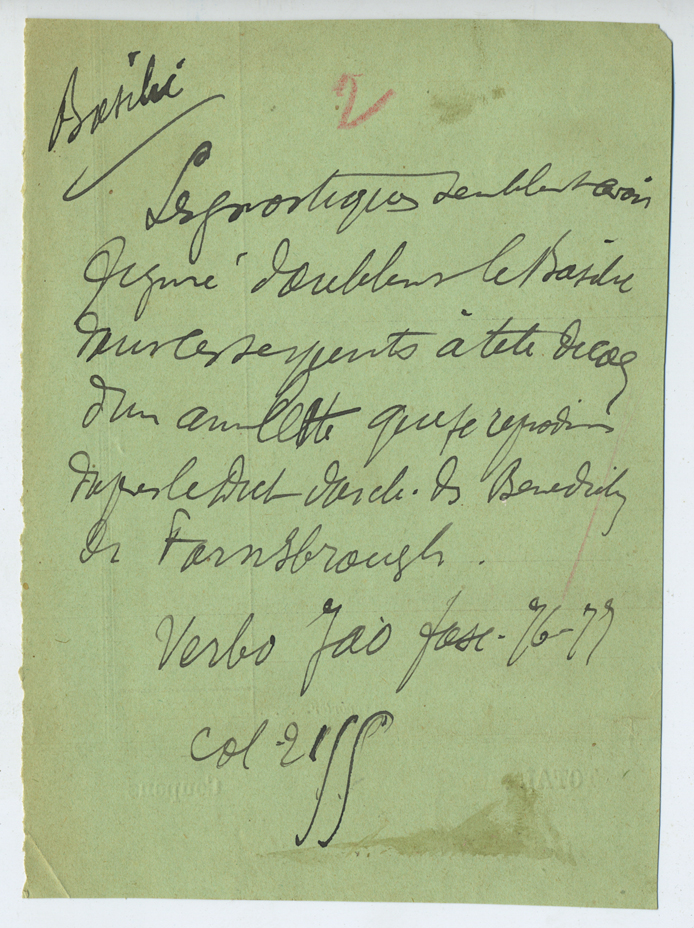 Basilic
2
Les gnostiques semblent avoir
figuré d'ailleurs le Basilic
dans les serpents à tête de coq
d'un amulette que je reproduis
d'après le Dict d'arch. des Benedictins
de Farnsbrough.
Verbo Jaò fasc. 76-77
col 21
Coupons